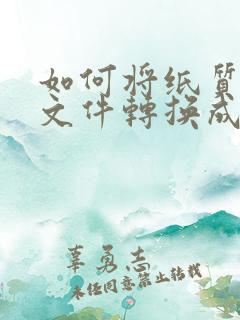 如何将纸质
文件轉换成
辜勇志
未经同意禁止转载